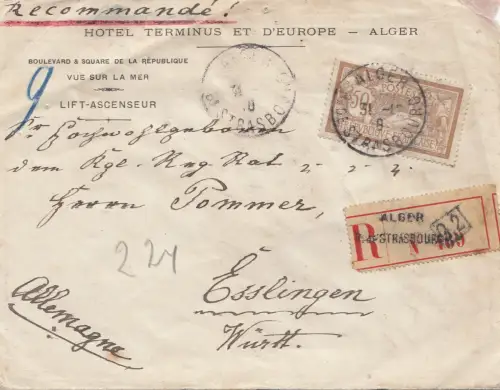 Recommandé!
HOTEL TERMINUS ET D'EUROPE — ALGER
BOULEVARD & SQUARE DE LA RÉPUBLIQUE
VUE SUR LA MER
LIFT-ASCENSEUR
9
ALGER
STRASBOURG
POSTES
50
Sr Hochwohlgeboren
dem Kgl. Reg. Rat
Herrn Pommer,
ALGER
R. de STRASBOURG
R
224
Esslingen
Württ.
Allemagne